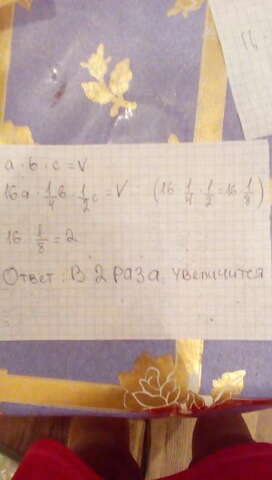 a · b · c = V
16a · 1/4 b · 1/2 c = V (16 · 1/4 · 1/2 = 16 · 1/8)
16 · 1/8 = 2
Ответ: В 2 раза увеличится